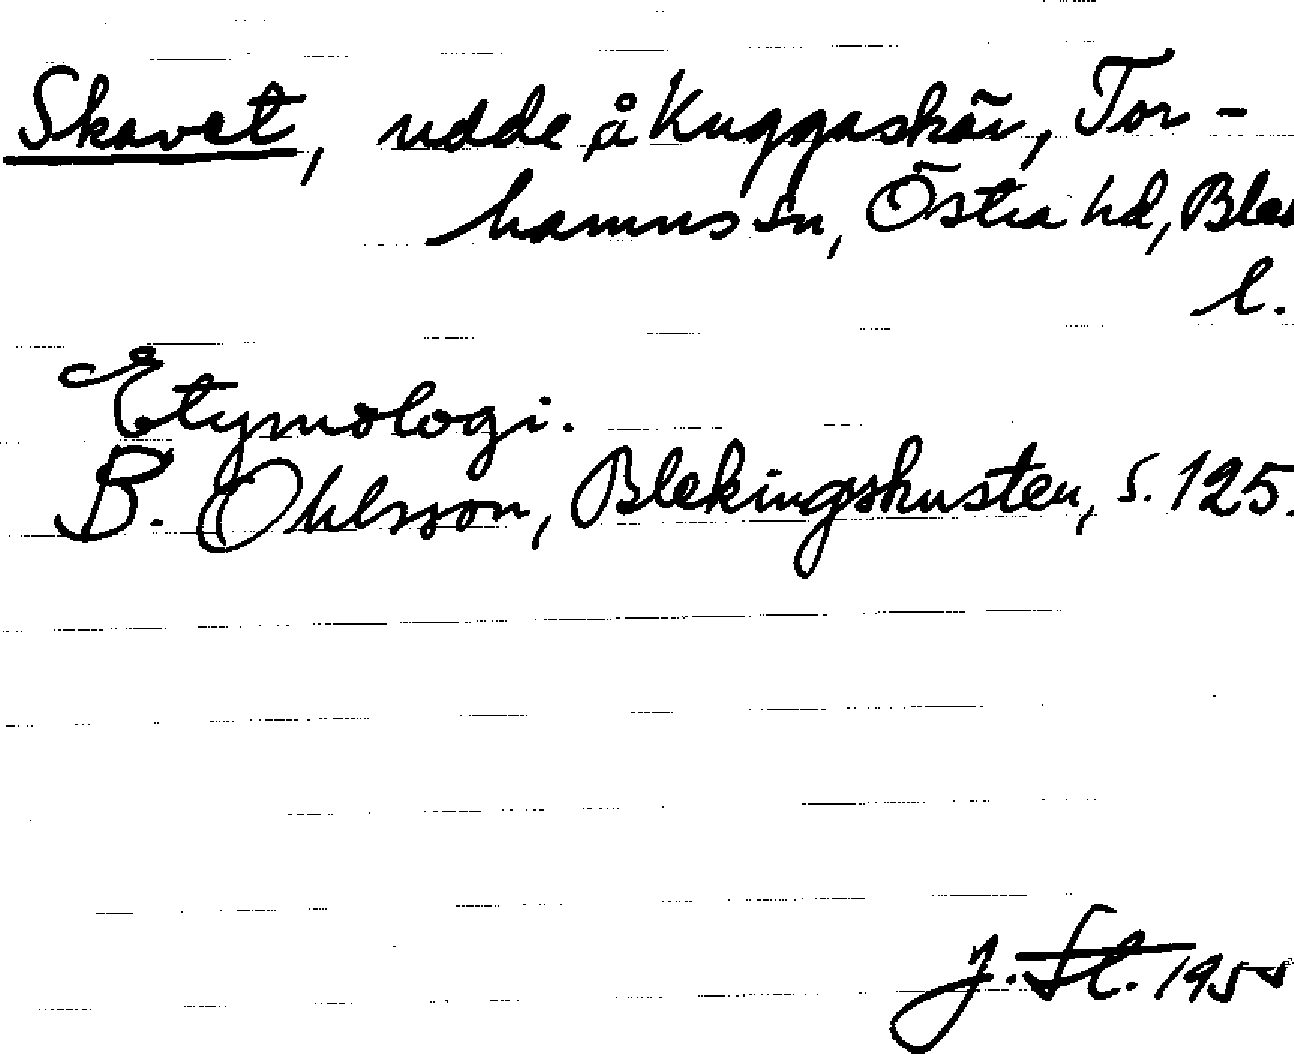 Skavet, udde å Kuggaskär, Tor-
hamns sn, Östra hd, Blek
l.
Etymologi.
B. Ohlsson, Blekingskusten, s. 125.
J. St. 1955